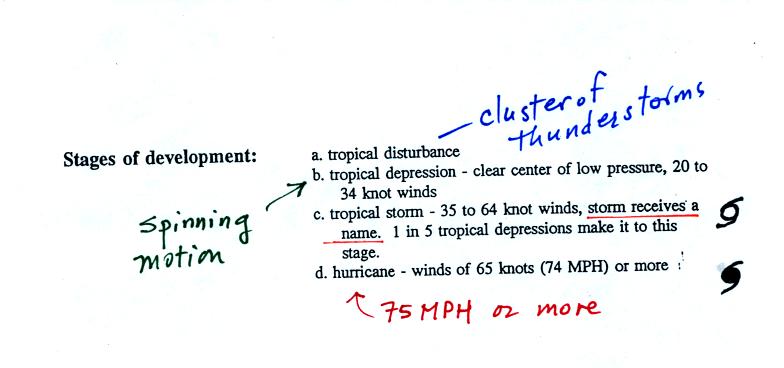 cluster of
thunderstorms
Stages of development:
a. tropical disturbance
b. tropical depression - clear center of low pressure, 20 to
34 knot winds
c. tropical storm - 35 to 64 knot winds, storm receives a
name. 1 in 5 tropical depressions make it to this
stage.
d. hurricane - winds of 65 knots (74 MPH) or more
spinning
motion
75 MPH or more